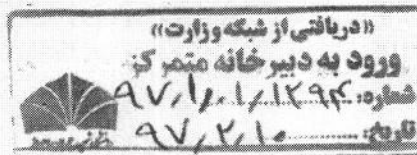 «دریافتی از شبکه وزارت»
ورود به دبیرخانه متمرکز
شماره: ۹۷/۱۰۱/۱۲۹۴
تاریخ: ۹۷/۲/۱۰